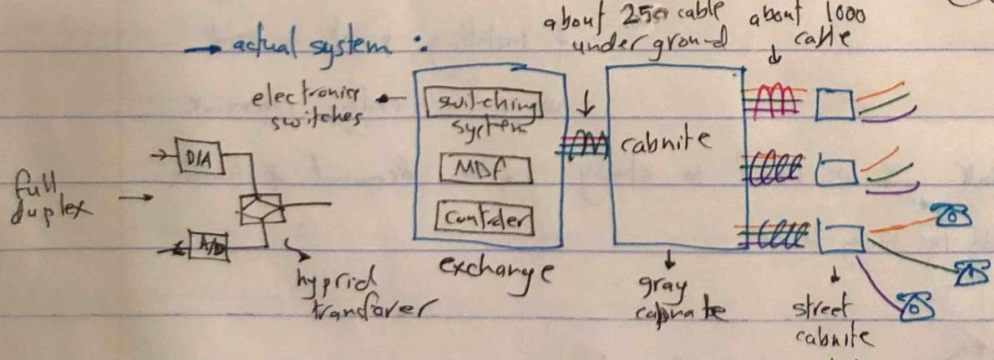 → actual system :
about 250 cable
under ground
about 1000
cable
electronics
switches
switching
system
MDF
Contder
exchange
cabnite
gray
cabnate
street
cabnite
full
duplex
D/A
A/D
hyprid
transforer